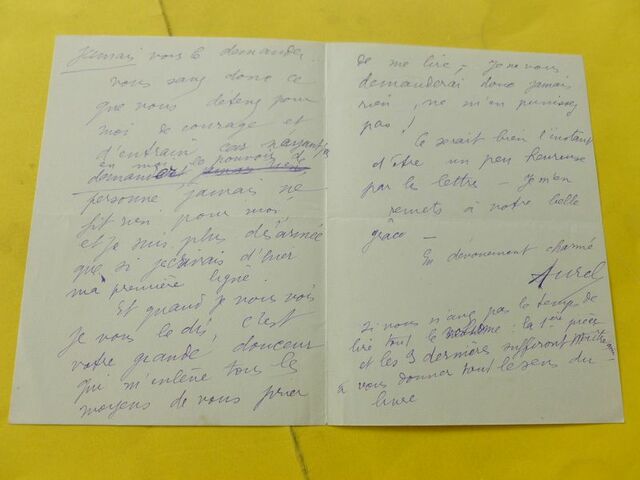 Jamais vous le demander.
vous savez donc ce
que vous détenez pour
moi de courage et
d'entrain car n'ayant pas
en moi le pouvoir de
demander
personne jamais ne
fit rien pour moi,
et je suis plus désarmée
que si j'écrivais d'hier
ma première ligne.
Et quand je vous vois
Je vous le dis, c'est
votre grande douceur
qui m'enlève tous les
moyens de vous prier
de me lire — Je ne vous
demanderai donc jamais
rien, ne m'en punissez
pas !
Ce serait bien l'instant
d'être un peu heureuse
par les lettres — Je m'en
remets à votre belle
grâce —
En dévouement charmé
Aurel
Si vous n'avez pas le temps de
lire tout le volume : la 1ère pièce
et les 3 dernières suffiront
à vous donner tout le sens du
livre